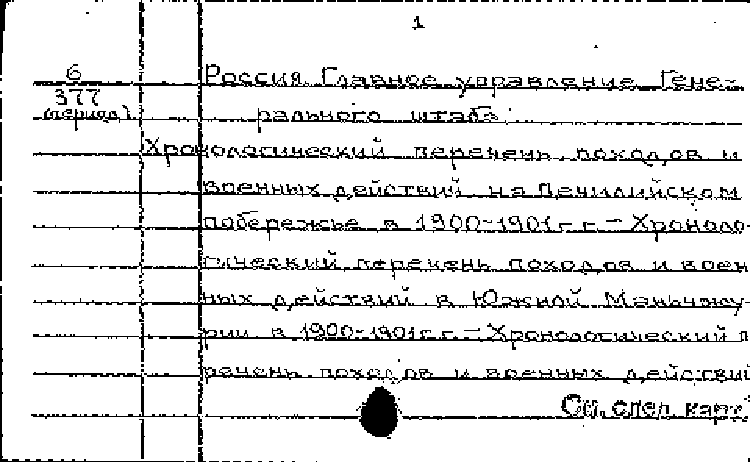 1
6
377
(период)
Россия. Главное управление Гене-
рального штаба.
Хронологический перечень походов и
военных действий на Печилийском
побережье в 1900-1901 г.г. - Хроноло-
гический перечень походов и воен
ных действий в Южной Маньчжу-
рии в 1900-1901 г.г. - Хронологический п
речень походов и военных действий
См. след. карт